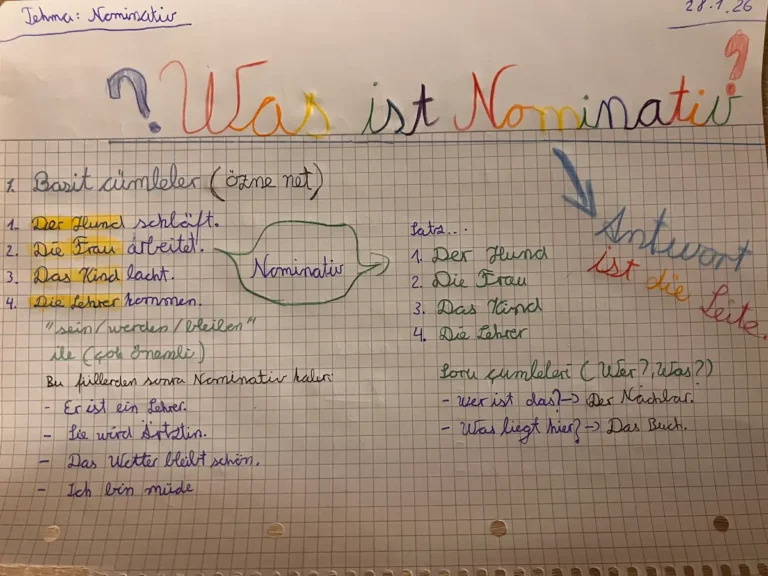 Tehma: Nominativ
28.1.26
? Was ist Nominativ ?
1. Basit cümleler (özne net)
1. Der Hund schläft.
2. Die Frau arbeitet.
3. Das Kind lacht.
4. Die Lehrer kommen.
Nominativ
Satz...
1. Der Hund
2. Die Frau
3. Das Kind
4. Die Lehrer
Antwort
ist die
Seite.
"sein/werden/bleiben"
ile (çok önemli)
Bu fiillerden sonra Nominativ kalır:
- Er ist ein Lehrer.
- Sie wird Ärtztin.
- Das Wetter bleibt schön.
- Ich bin müde
Soru cümleleri (Wer?, Was?)
- wer ist das?-> Der Nachbar.
- Was liegt hier?-> Das Buch.